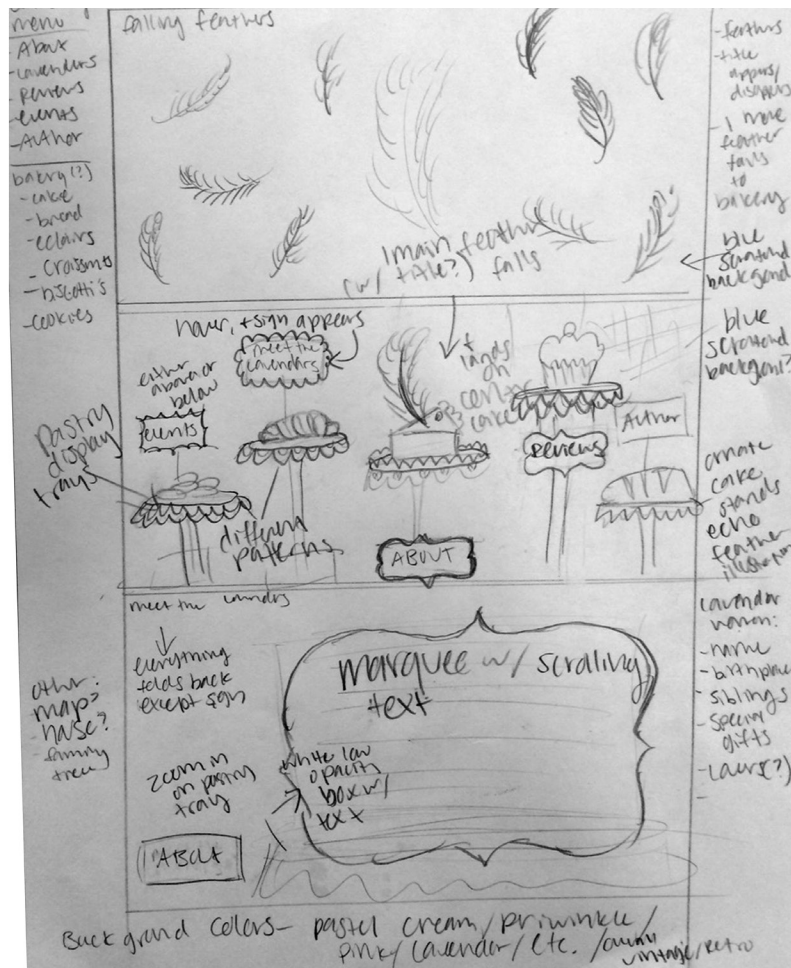 menu
- About
- Lavenders
- Reviews
- events
- Author
bakery(?)
- cake
- bread
- eclairs
- croissants
- biscotti's
- cookies
falling feathers
1 main feather
(w/ title?) falls
- feathers
- title
appears/
disappears
- 1 more
feather
falls
to
bakery
blue
background
hover, + sign appears
meet the
lavenders
either
above or
below
events
Pastry
display
trays
different
patterns
+
lands
on
center
cake
ABOUT
Reviews
Author
blue
background?
ornate
cake
stands
echo
feather
meet the
everything
folds back
except sign
zoom in
on pastry
tray
ABOUT
white low
opacity
box w/
text
marquee w/ scrolling
text
other:
map?
house?
family
tree
lavender
women:
- name
- birthplace
- siblings
- special
gifts
- (?)
-
Background Colors - pastel cream/priwinkle/
pink/lavender/etc. / vintage/retro